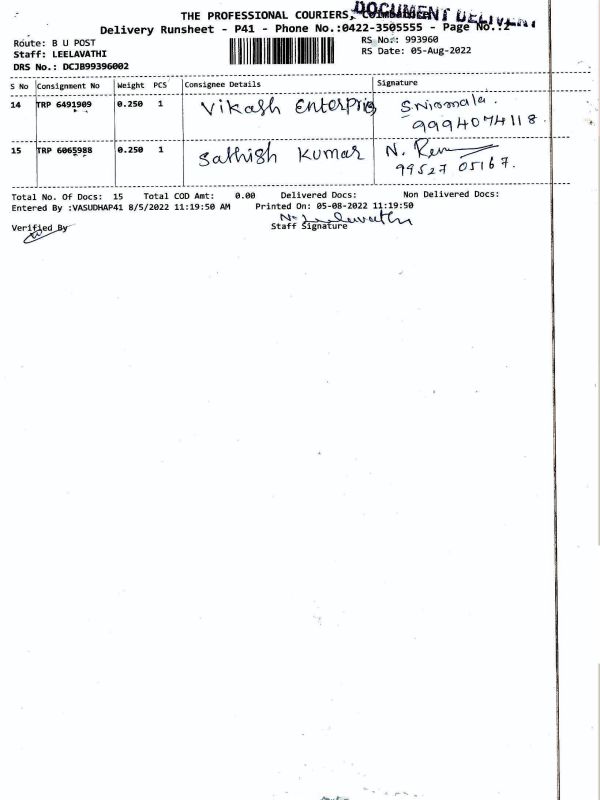 THE PROFESSIONAL COURIERS, Coimbatore
DOCUMENT DELIVERY
Delivery Runsheet - P41 - Phone No.:0422-3505555 - Page No.:2
Route: B U POST
Staff: LEELAVATHI
DRS No.: DCJB99396002
RS No.: 993960
RS Date: 05-Aug-2022
S No Consignment No Weight PCS Consignee Details Signature
14 TRP 6491909 0.250 1 Vikash Enterpris S.Nirmala.
9994074118.
15 TRP 6065988 0.250 1 Sathish Kumar N.
99527 05167.
Total No. Of Docs: 15 Total COD Amt: 0.00 Delivered Docs: Non Delivered Docs:
Entered By :VASUDHAP41 8/5/2022 11:19:50 AM Printed On: 05-08-2022 11:19:50
N. Leelavathi
Verified By Staff Signature